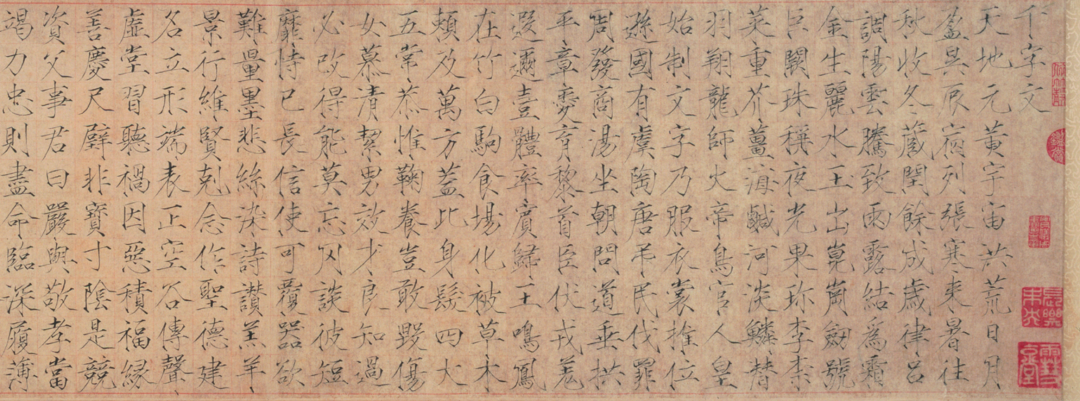 千字文
天地元黃宇宙洪荒日月
盈昃辰宿列張寒來暑往
秋收冬藏閏餘成歲律呂
調陽雲騰致雨露結為霜
金生麗水玉出崑崗劒號
巨闕珠稱夜光果珍李柰
菜重芥薑海鹹河淡鱗潛
羽翔龍師火帝鳥官人皇
始制文字乃服衣裳推位
遜國有虞陶唐弔民伐罪
周發商湯坐朝問道垂拱
平章愛育黎首臣伏戎羌
遐邇壹體率賓歸王鳴鳳
在竹白駒食場化被草木
賴及萬方蓋此身髮四大
五常恭惟鞠養豈敢毀傷
女慕清絜男效才良知過
必改得能莫忘罔談彼短
靡恃己長信使可覆器欲
難量墨悲絲染詩讚羔羊
景行維賢剋念作聖德建
名立形端表正空谷傳聲
虛堂習聽禍因惡積福緣
善慶尺璧非寶寸陰是競
資父事君曰嚴與敬孝當
竭力忠則盡命臨深履薄